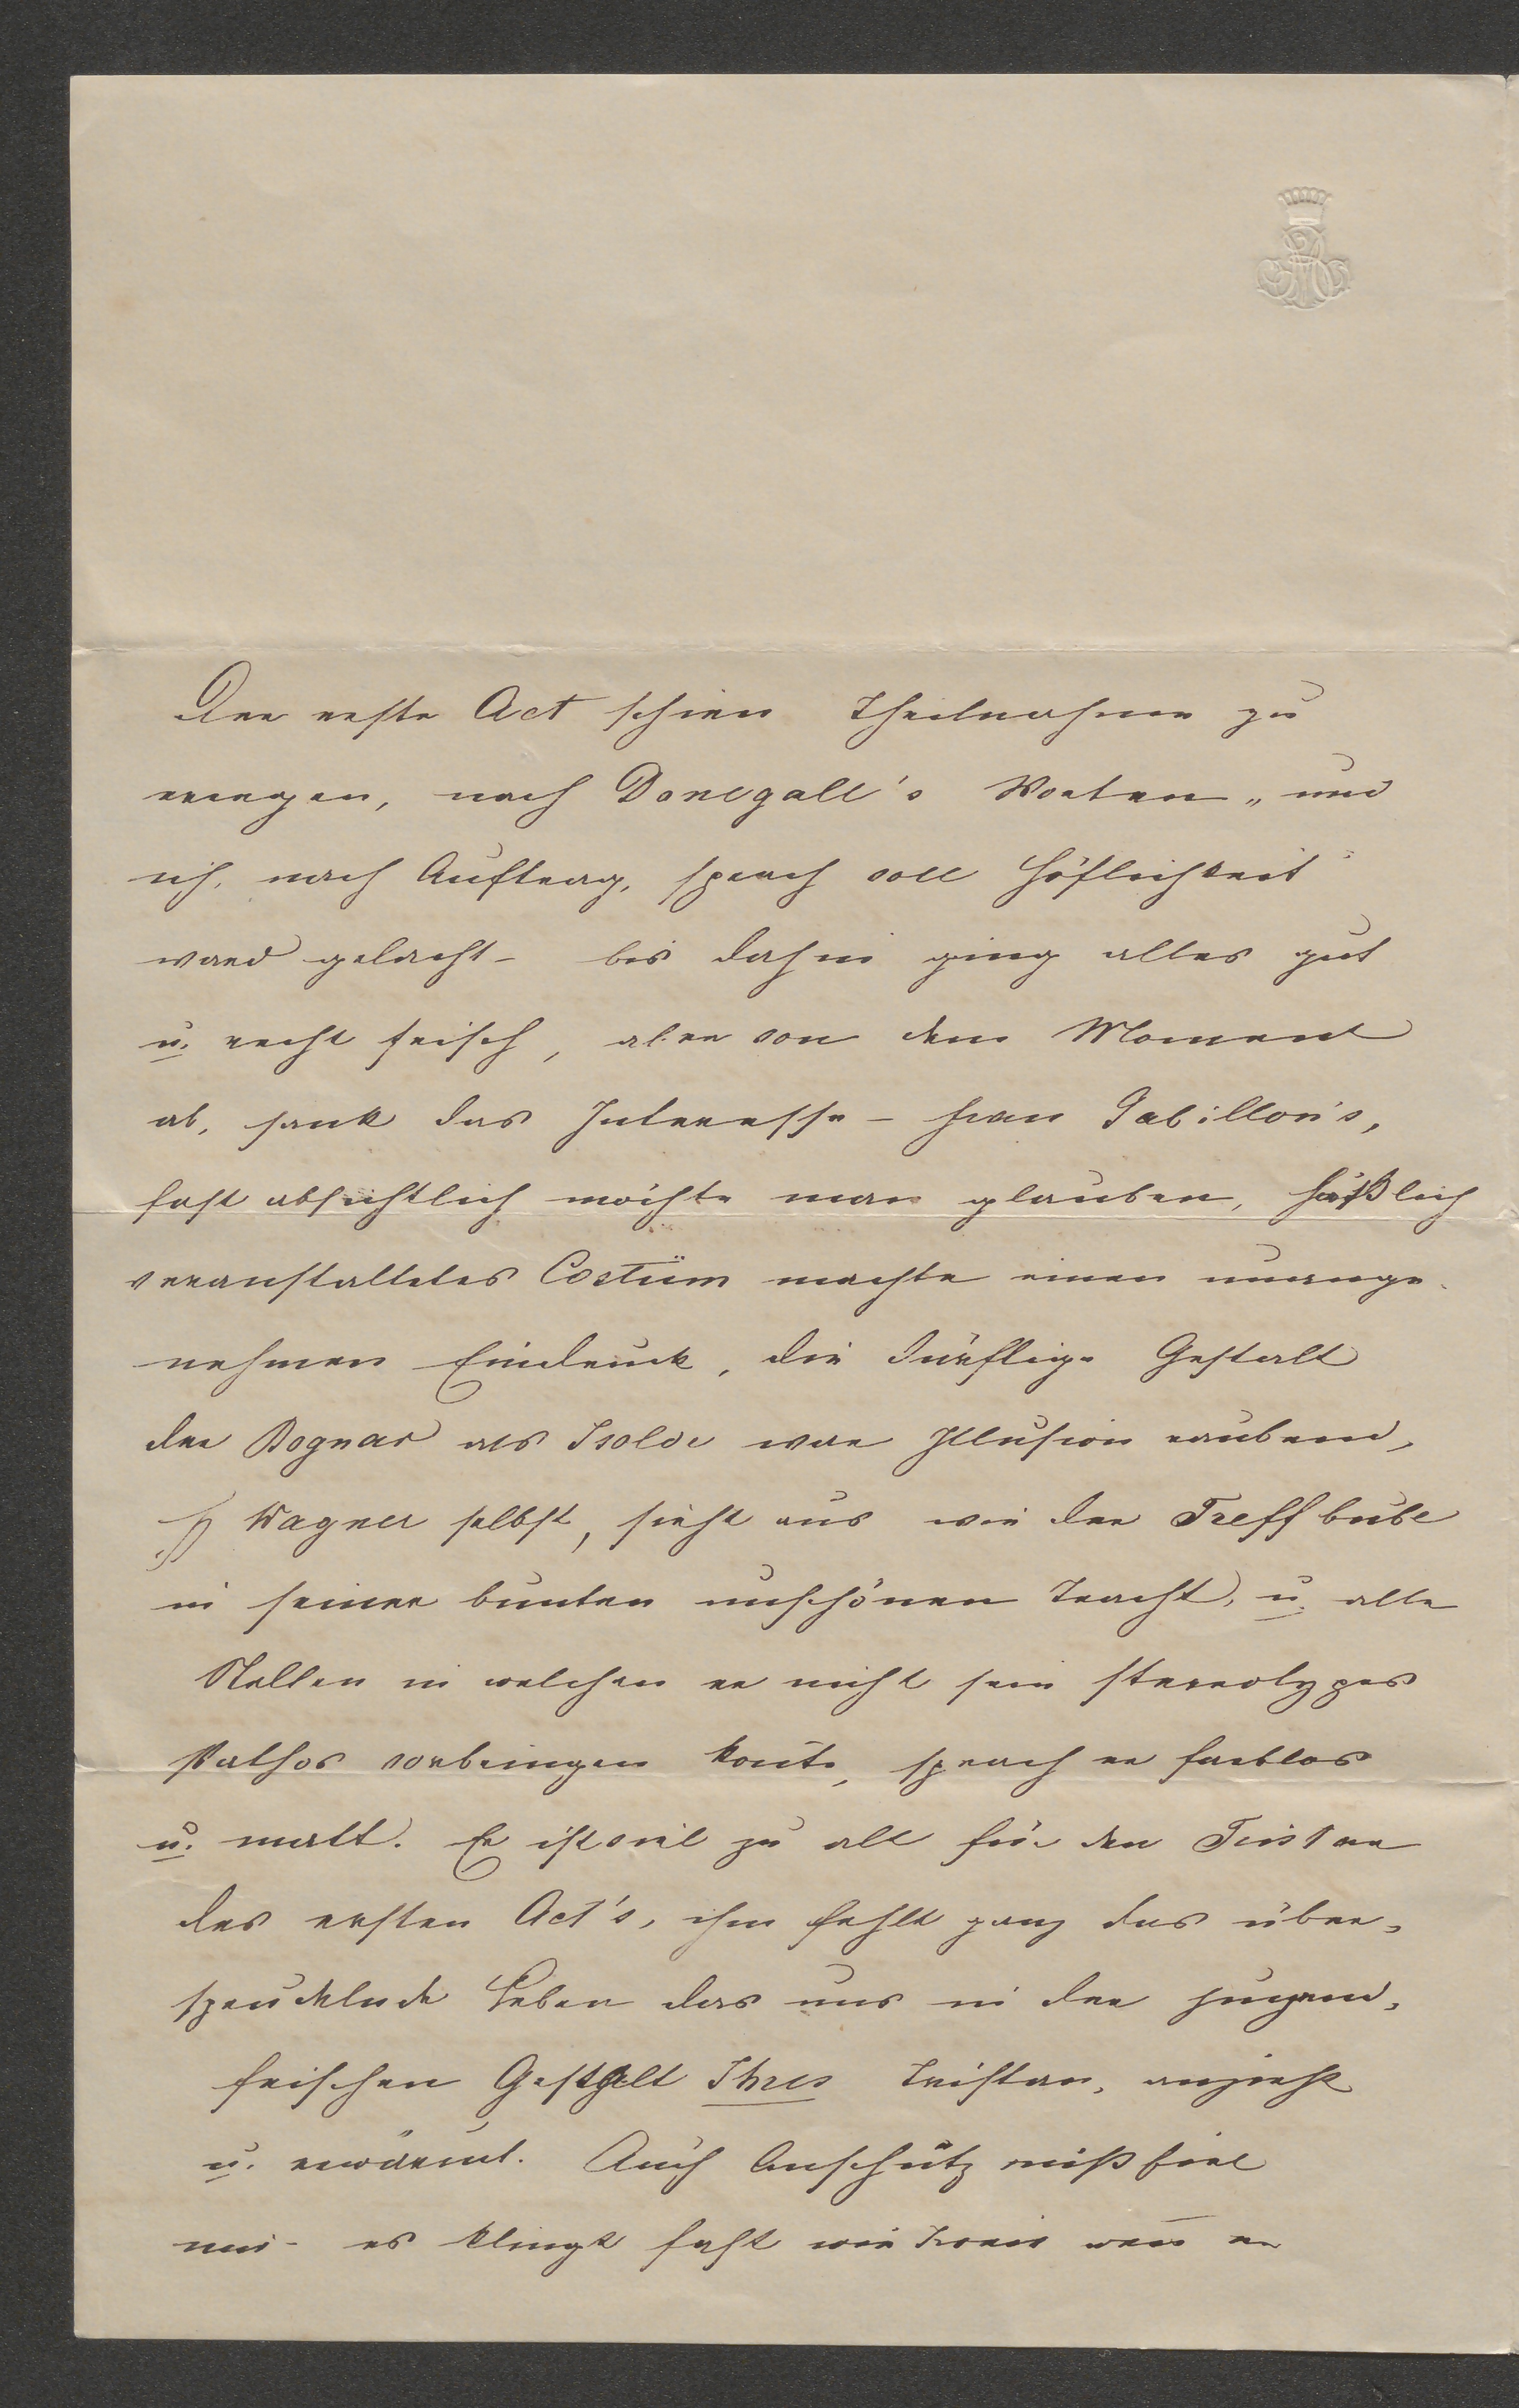 Der erste Act schien Theilnahme zu
erregen, nach Donegall's Worten „und
ich, nach Auftrag, sprach voll Höflichkeit"
ward gelacht – bis dahin ging alles gut
u. recht frisch, aber von dem Moment
ab, sank das Interesse – Frau Gabillon's,
fast absichtlich möchte man glauben, häßlich
veranstaltetes Costüm machte einen unange-
nehmen Eindruck, die dürftige Gestalt
der Bognar als Isolde war Illusion raubend,
H Wagner selbst, sieht aus wie der Treff bube
in seiner bunten unschönen Tracht, u. alle
Stellen in welchen er nicht sein stereotypes
Pathos vorbringen konte, sprach er farblos
u. matt. Er ist viel zu alt für den Tristan
des ersten Act's, ihm fehlt ganz das über-
sprudelnde Leben das uns in der jugend-
frischen Gestalt Ihres Tristan, anzieht
u. erwärmt. Auch Anschütz mißfiel
mir – es klingt fast wie Ironie wen er